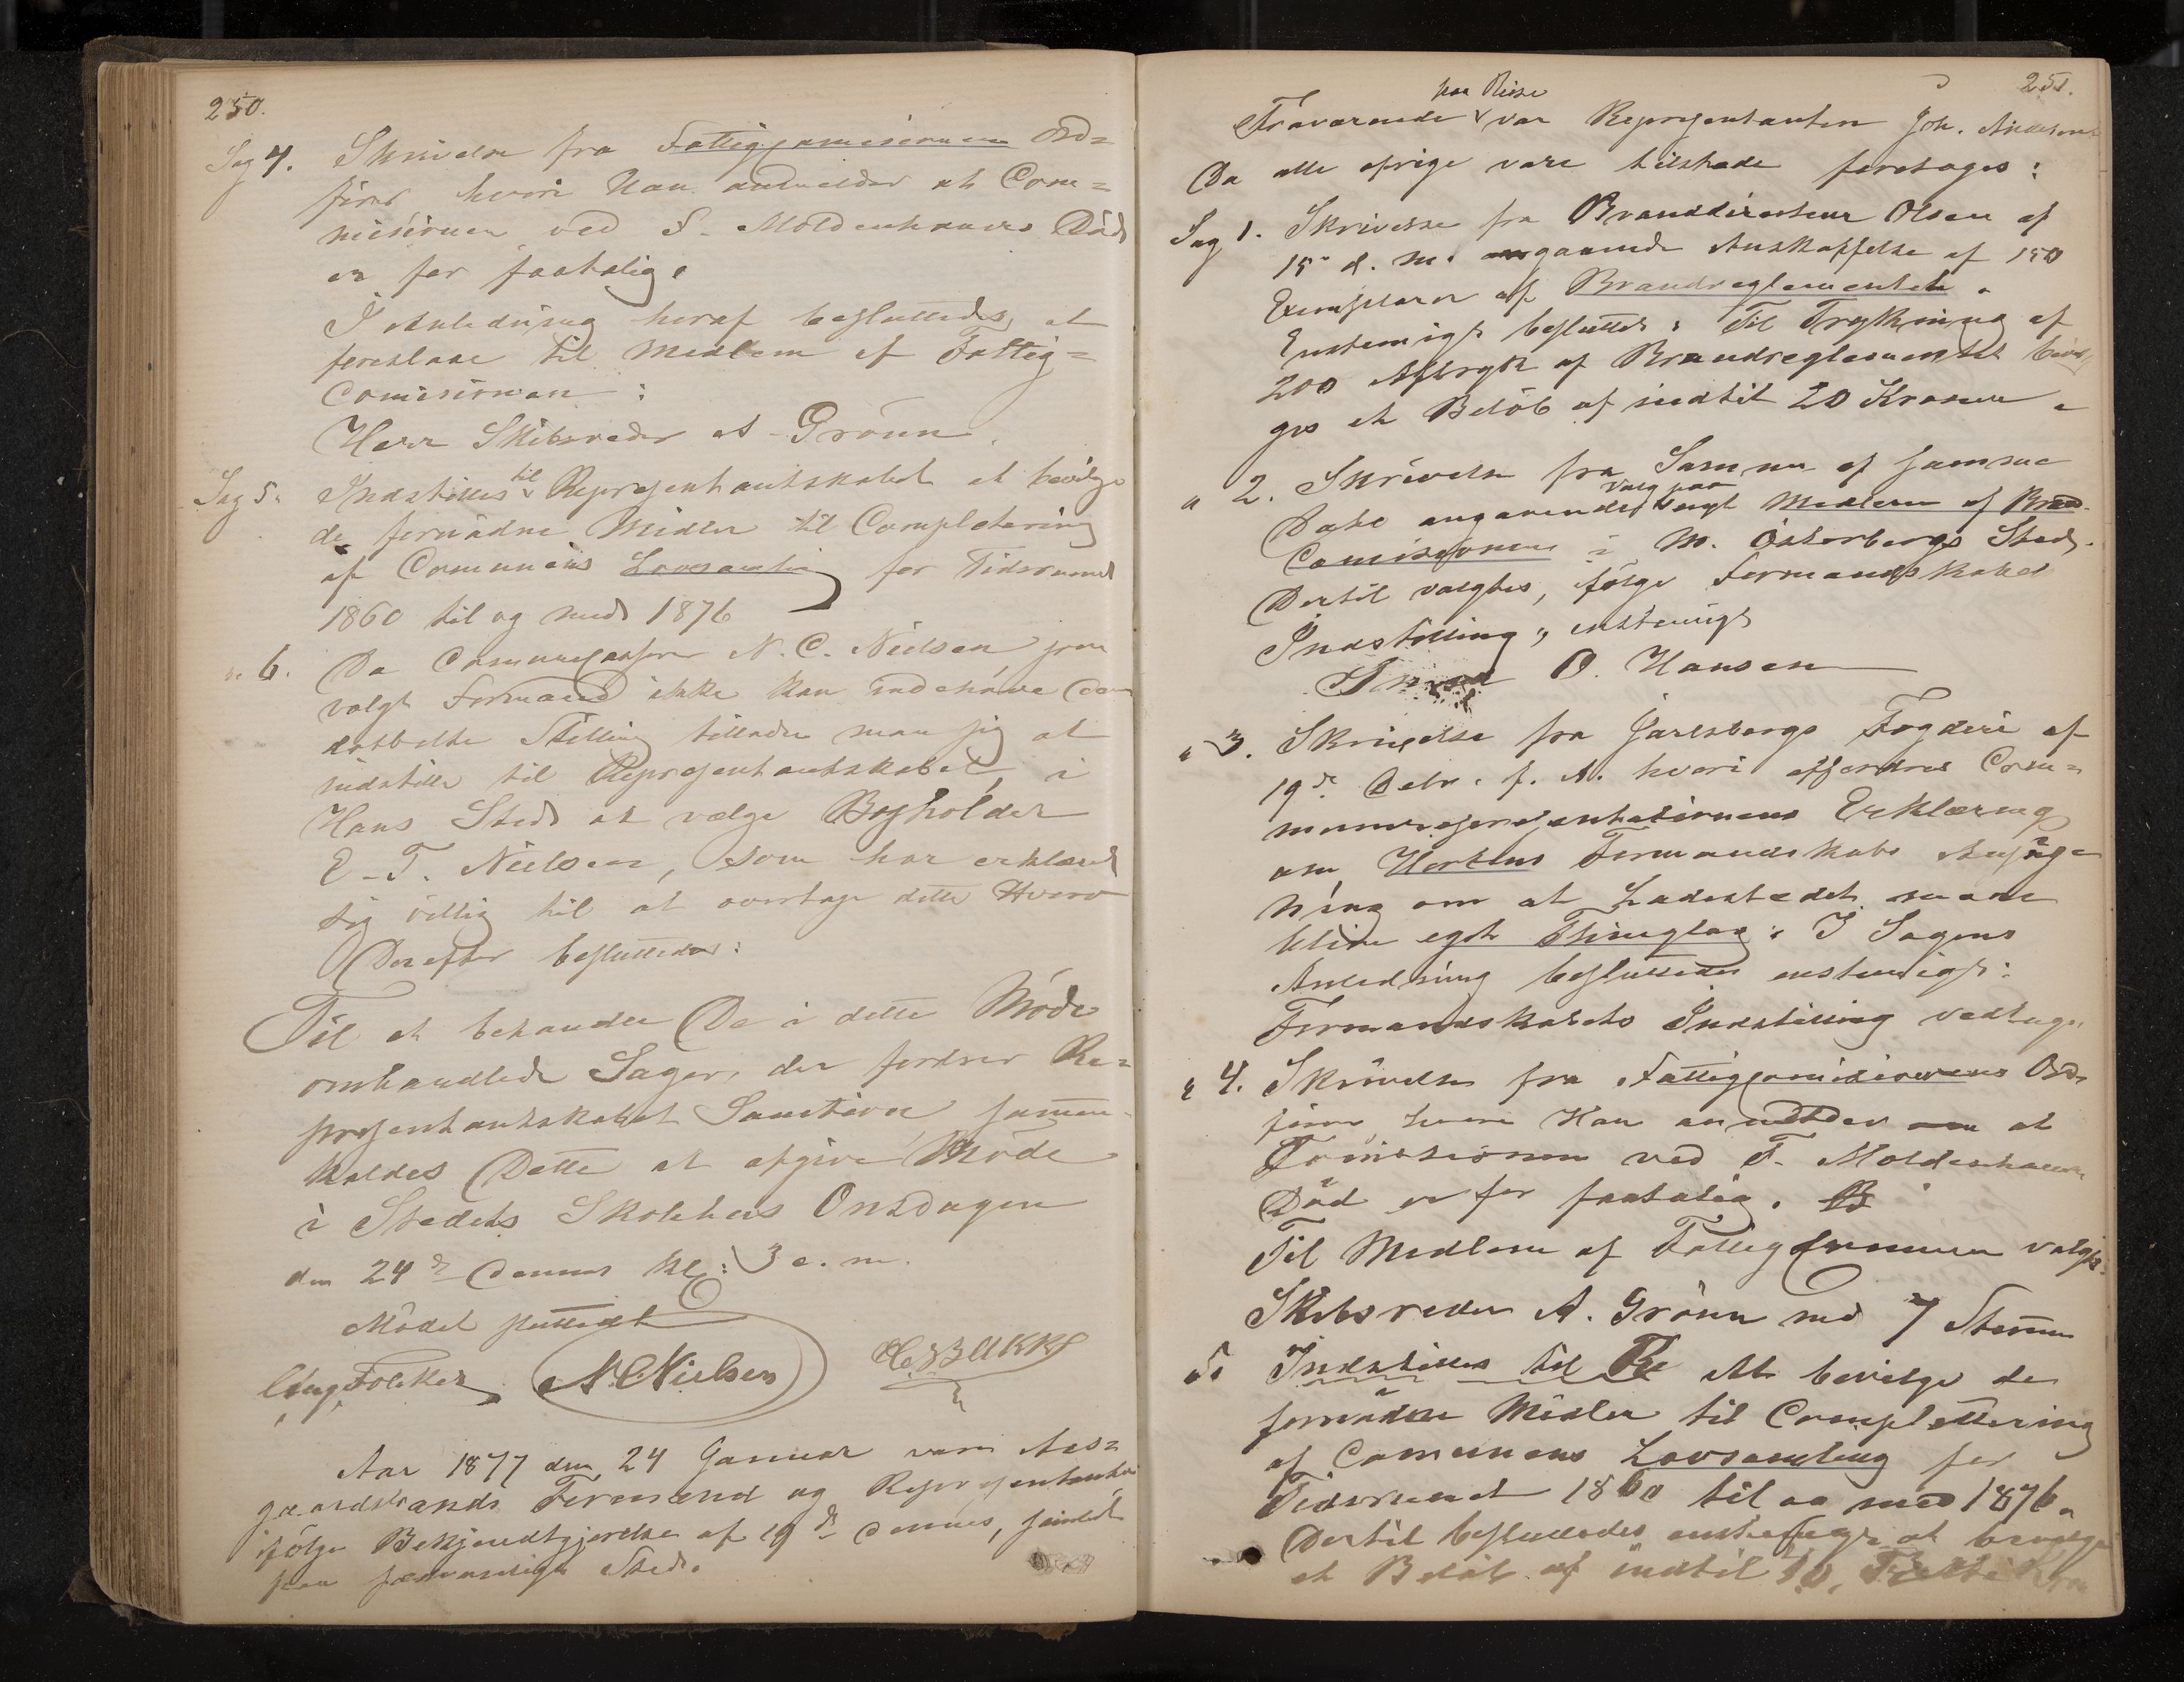 250.
Sag 4. Skrivelse fra Fattigcomisionens Ord=
fører hvori Han anmelder at Com=
misionen ved F. Moldenhauers Død
er for faatalig.
I Anledning heraf besluttedes at
foreslaae til Medlem af Fattig=
Comisionen:
Herr Skibsreder A. Grønn.
Sag 5. Indstilles til Representantskabet at bevilge
de fornødne Midler til Completering
af Comunens Lovsamling for Tidsrummet
1860 til og med 1876
" 6. Da Comunecasserer N. C. Nielsen som
valgt Formand ikke kan indehave den
dobbelte Stilling tillader man sig at
indstille til Representantskabet i
Hans Sted at vælge Bogholder
E. T. Nielsen, som har erklæret
sig villig til at overtage dette Hverv
Derefter besluttedes:
Til at behandle De i dette Møde
omhandlede Sager, der fordrer Re=
presentantskabet Sanction, samen-
kaldes Dette at afgive Møde
i Stedets Skolehus Onsdagen
den 24de dennes Kl: 3 e. m.
Mødet sluttedt
Aug. Foleker N. C. Nielsen
Aar 1877 den 24 Januar vare Aas=
gaardstrands Formænd og Representanter
ifølge Bekjendtgjørelse af 19de dennes, samlet
paa sædvanlige Sted.
251.
paa Reise
Fraværende var Representanten Joh. Andersen
Da alle øvrige vare tilstede foretoges:
Sag 1. Skrivelse fra Branddirecteur Olsen af
15 d. M. angaaende Anskaffelse af 150
Exemplarer af Brandreglementet.
Enstemigt besluttet: Til Trykning af
200 Aftryk af Brandreglementet bevil
ges et Beløb af indtil 20 Kroner.
" 2. Skrivelse fra Samme af samme
Valg paa
Dato angaaende nyt Medlem af Brand
Comisionen i M. Østerbergs Sted.
Dertil valgtes, ifølge Formandskabets
Indstilling, enstemigt
O. Hansen
" 3. Skrivelse fra Jarlsbergs Fogderi af
19de Debr. f. A. hvori affordres Com=
munerepresentationens Erklæring
om Hortens Formandskabs Ansøg=
ning om at Ladestedet maatte
blive eget Thinglag. I Sagens
Anledning besluttedes enstemigt:
Formandskabets Indstilling vedtages
" 4. Skrivelse fra Fattigcomisionens Ord=
fører hvori Han anmelder at
Comisionen ved F. Moldenhauers
Død er for faatalig.
Til Medlem af Fattigcomisionen valgtes
Skibsreder A. Grønn med 7 Stemmer
5. Indstilles til Re At bevilge de
fornødne Midler til Complettering
af Comunens Lovsamling for
Tidsrummet 1860 til og med 1876.
Dertil besluttedes enstemigt at bevilge
et Beløb af indtil